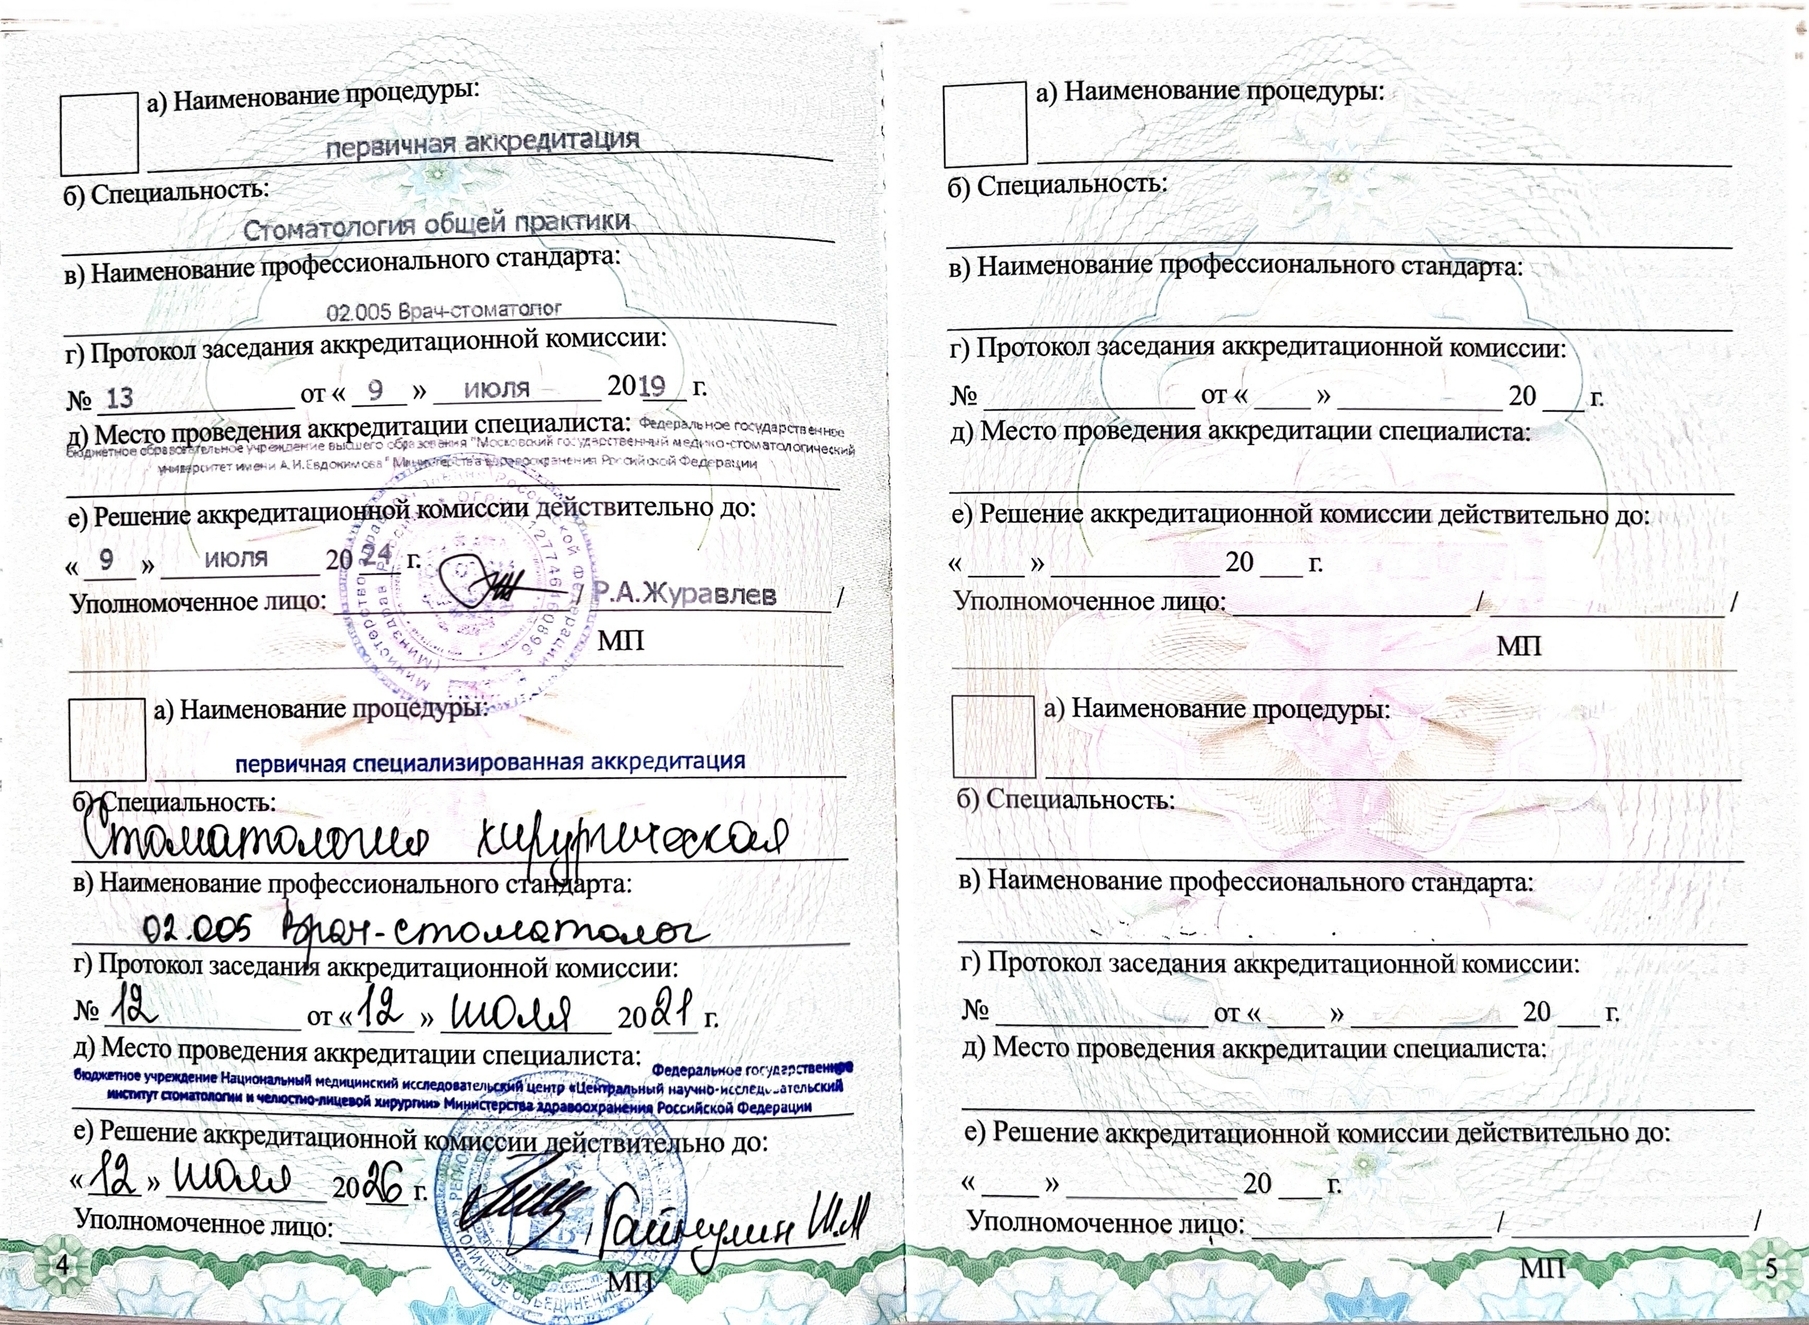 а) Наименование процедуры:
первичная аккредитация
б) Специальность:
Стоматология общей практики
в) Наименование профессионального стандарта:
02.005 Врач-стоматолог
г) Протокол заседания аккредитационной комиссии:
№ 13 от « 9 » июля 2019 г.
д) Место проведения аккредитации специалиста: Федеральное государственное
бюджетное образовательное учреждение высшего образования "Московский государственный медико-стоматологический
университет имени А.И.Евдокимова" Министерства здравоохранения Российской Федерации
е) Решение аккредитационной комиссии действительно до:
« 9 » июля 2024 г.
Уполномоченное лицо: / Р.А.Журавлев /
МП
а) Наименование процедуры:
первичная специализированная аккредитация
б) Специальность:
Стоматология хирургическая
в) Наименование профессионального стандарта:
02.005 Врач-стоматолог
г) Протокол заседания аккредитационной комиссии:
№ 12 от « 12 » июля 2021 г.
д) Место проведения аккредитации специалиста: Федеральное государственное
бюджетное учреждение Национальный медицинский исследовательский центр «Центральный научно-исследовательский
институт стоматологии и челюстно-лицевой хирургии» Министерства здравоохранения Российской Федерации
е) Решение аккредитационной комиссии действительно до:
« 12 » июля 2026 г.
Уполномоченное лицо: / Гайнулин Ш.М
МП
4
а) Наименование процедуры:
б) Специальность:
в) Наименование профессионального стандарта:
г) Протокол заседания аккредитационной комиссии:
№ от « » 20 г.
д) Место проведения аккредитации специалиста:
е) Решение аккредитационной комиссии действительно до:
« » 20 г.
Уполномоченное лицо: / /
МП
а) Наименование процедуры:
б) Специальность:
в) Наименование профессионального стандарта:
г) Протокол заседания аккредитационной комиссии:
№ от « » 20 г.
д) Место проведения аккредитации специалиста:
е) Решение аккредитационной комиссии действительно до:
« » 20 г.
Уполномоченное лицо: / /
МП
5